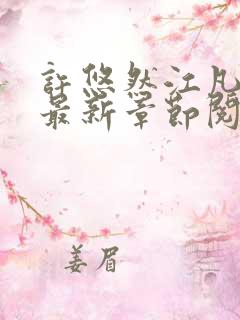 許悠然江凡
最新章節閱
姜眉